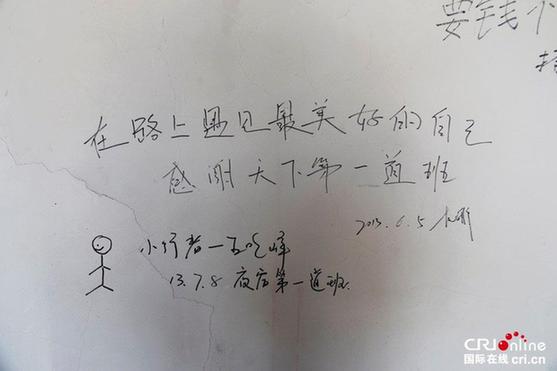 要钱不
在路上遇见最美好的自己
感谢天下第一道班
2013.6.5
小行者
13.7.8 夜宿第一道班.
CRIonline
国际在线 cri.cn